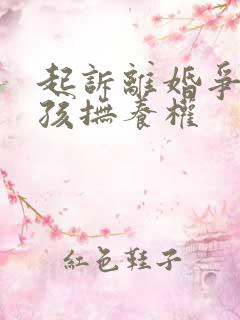 起訴離婚爭
孩撫養權
紅色鞋子